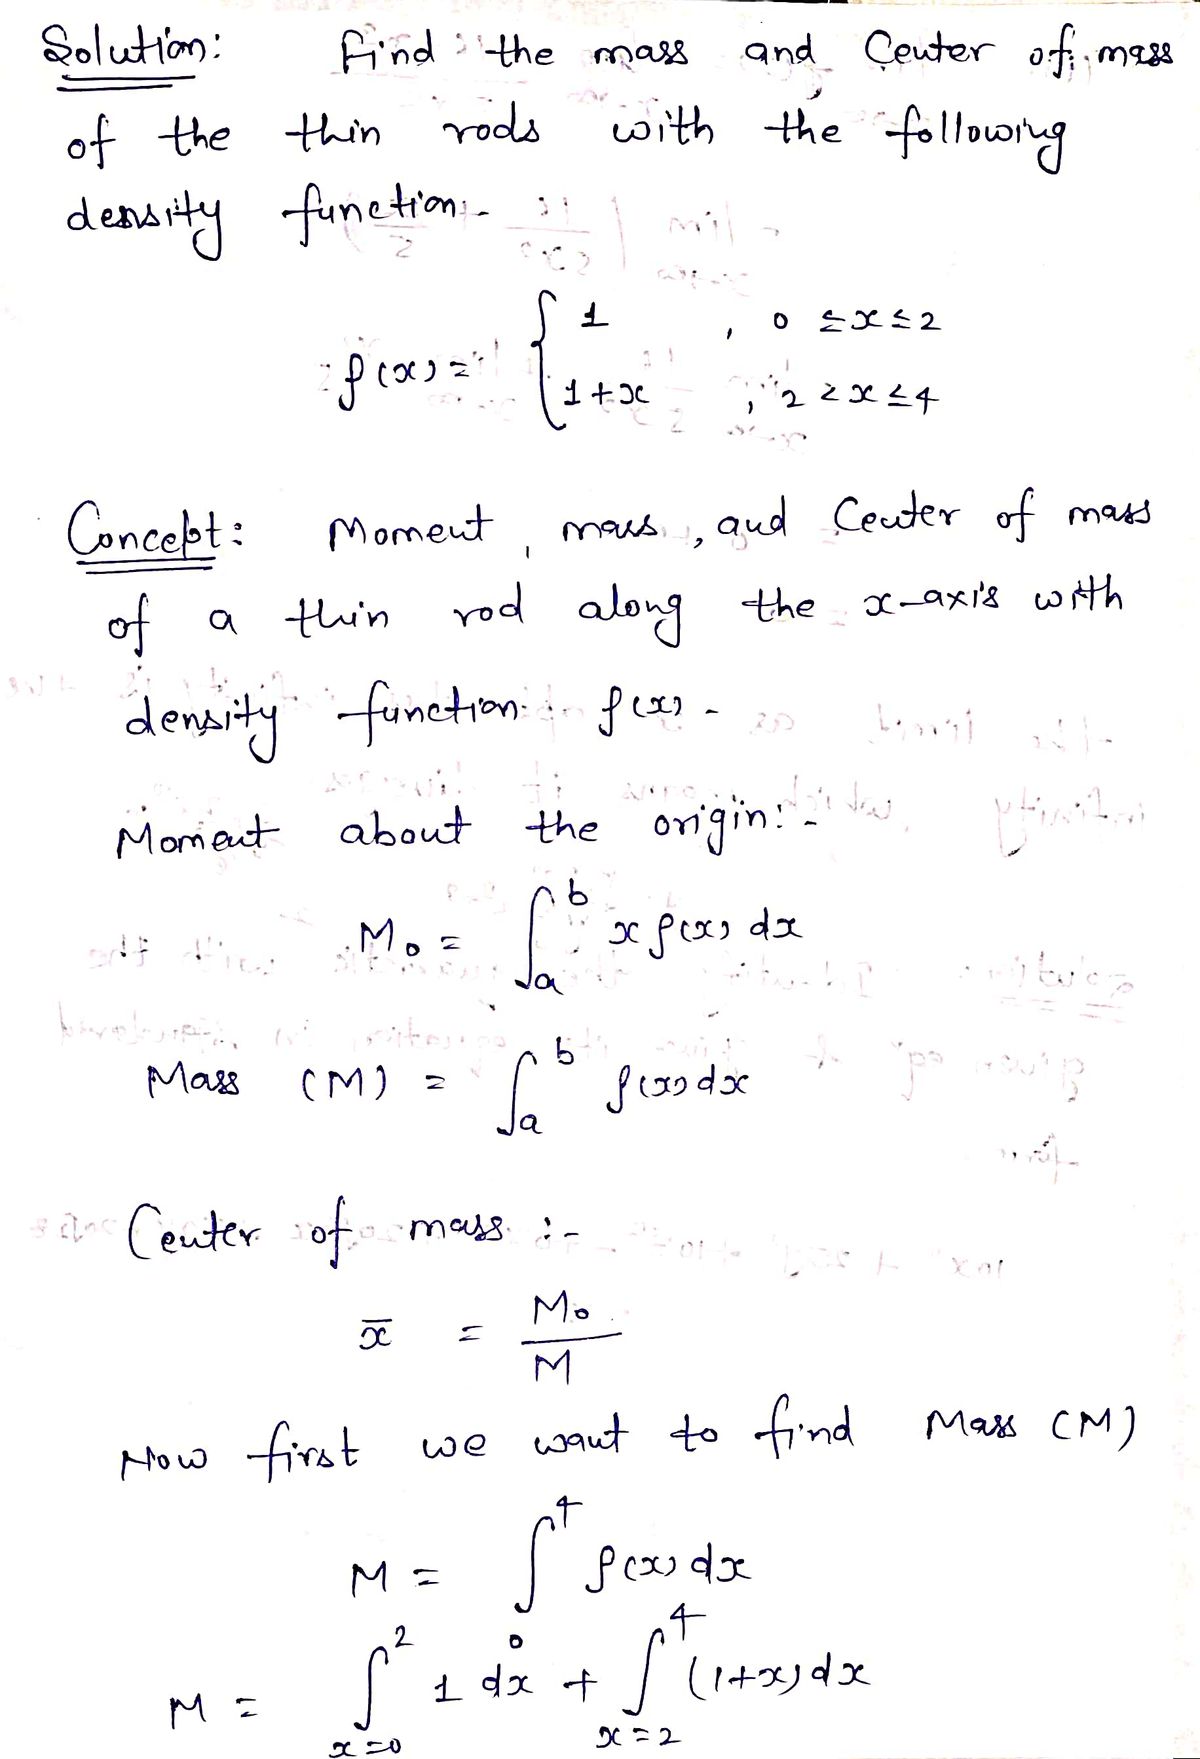 Solution: Find the mass and Center of mass
of the thin rods with the following
density function:-
ρ(x) = { 1 , 0 ≤ x ≤ 2
1+x , 2 < x ≤ 4
Concept: Moment, mass, and Center of mass
of a thin rod along the x-axis with
density function ρ(x) -
Moment about the origin:-
M₀ = ∫ₐᵇ x ρ(x) dx
Mass (M) = ∫ₐᵇ ρ(x) dx
Center of mass :-
x̄ = M₀ / M
Now first we want to find Mass (M)
M = ∫₀⁴ ρ(x) dx
M = ∫ₓ₌₀² 1 dx + ∫ₓ₌₂⁴ (1+x) dx